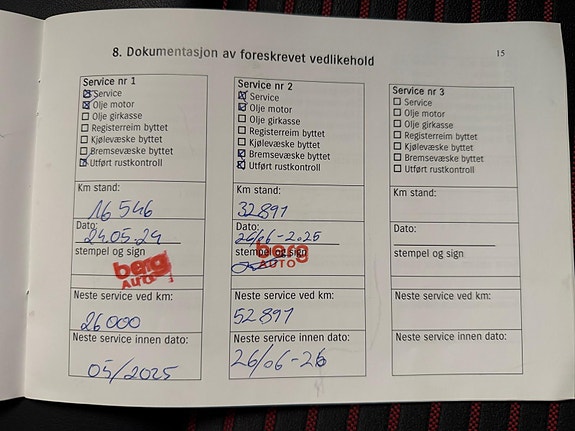 8. Dokumentasjon av foreskrevet vedlikehold
15
Service nr 1
Service
Olje motor
Olje girkasse
Registerreim byttet
Kjølevæske byttet
Bremsevæske byttet
Utført rustkontroll
Km stand:
16 546
Dato:
24.05.24
stempel og sign
berg
AUTO
Neste service ved km:
26000
Neste service innen dato:
05/2025
Service nr 2
Service
Olje motor
Olje girkasse
Registerreim byttet
Kjølevæske byttet
Bremsevæske byttet
Utført rustkontroll
Km stand:
32891
Dato:
26/06-2.25
stempel og sign
berg
AUTO
Neste service ved km:
52891
Neste service innen dato:
26/06-26
Service nr 3
Service
Olje motor
Olje girkasse
Registerreim byttet
Kjølevæske byttet
Bremsevæske byttet
Utført rustkontroll
Km stand:
Dato:
stempel og sign
Neste service ved km:
Neste service innen dato: